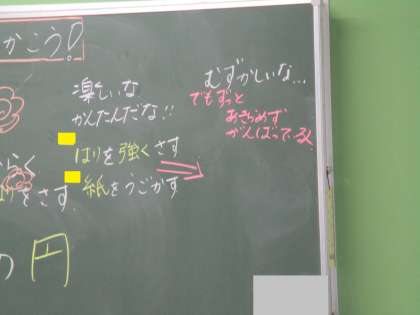 かこう!
楽しいな
かんたんだな!!
むずかしいな...
でもずっと
あきらめず
がんばってる人
はりを強くさす
紙をうごかす
らく
をさす
の円